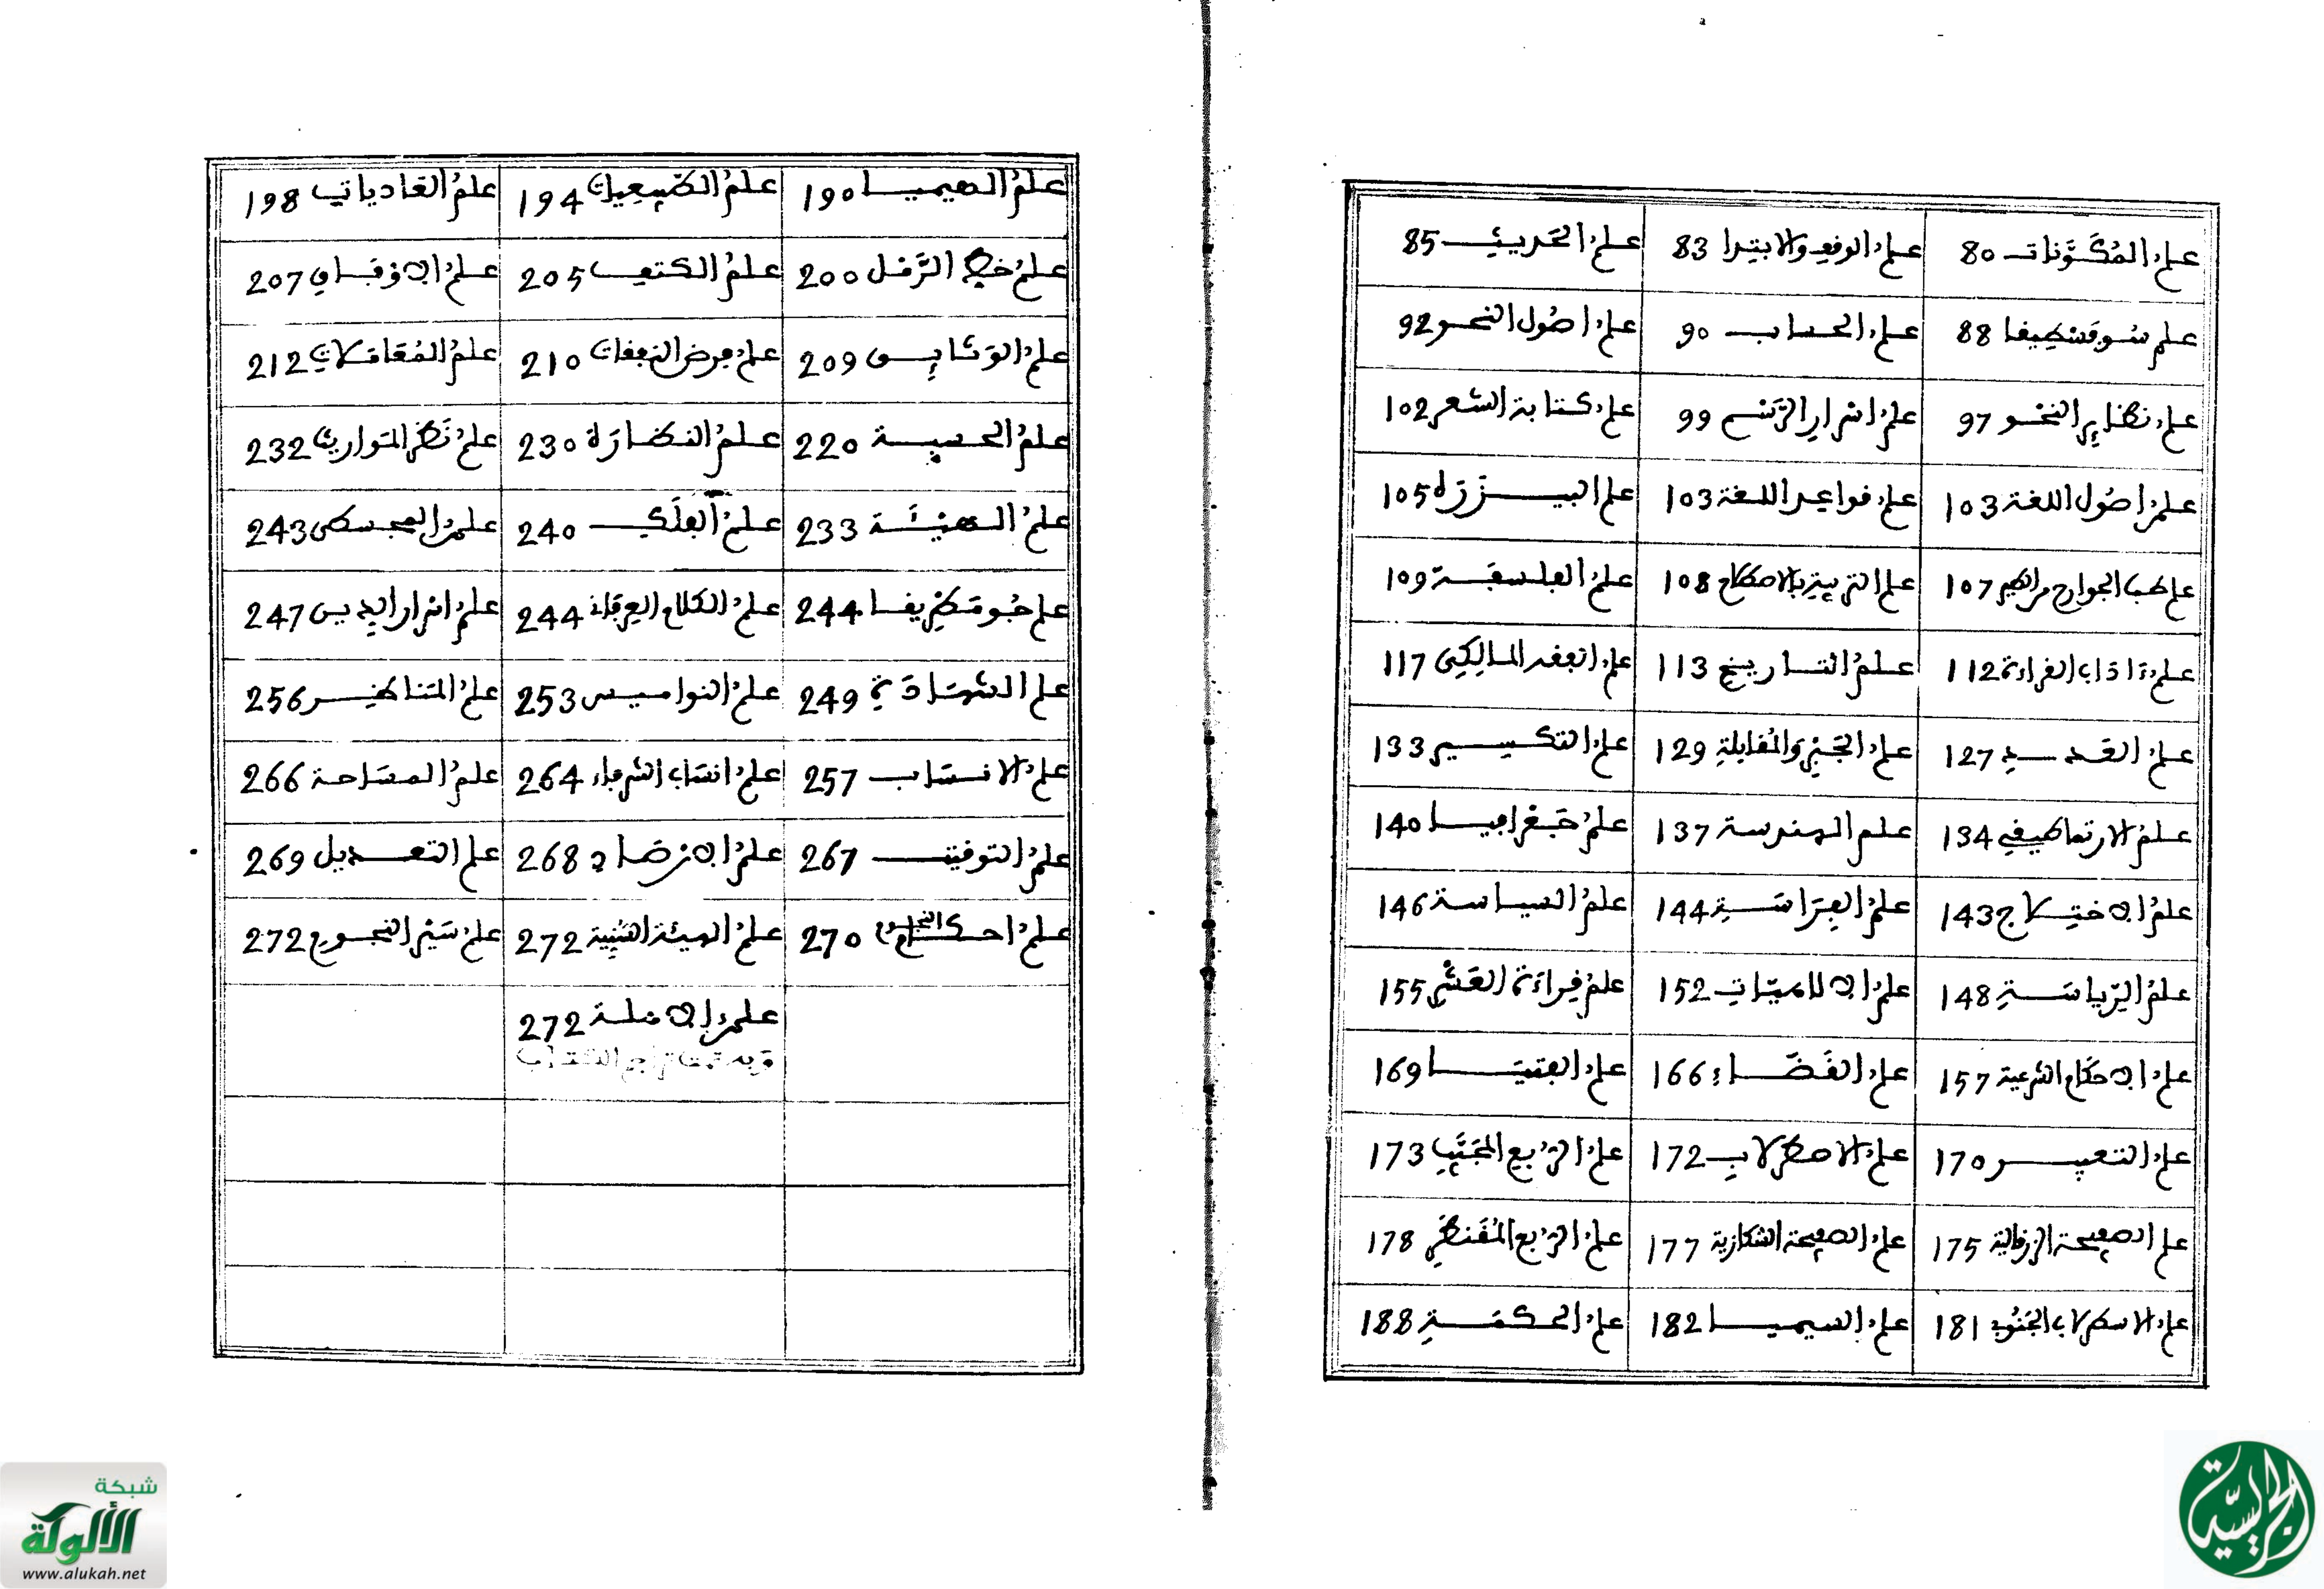 علم المكونات 80 علم الوقف والابتدا 83 علم الحديث 85
علم سوفسطيقا 88 علم الحساب 90 علم اصول النحو 92
علم نظاير النحو 97 علم اسرار الرسم 99 علم كتابة الشعر 102
علم اصول اللغة 103 علم قواعد اللغة 103 علم البيزرة 105
علم طب الجوارح من الطير 107 علم التربية بالاصطلاح 108 علم الفلسفة 109
علم ءاداب القراءة 112 علم التاريخ 113 علم الفقه المالكي 117
علم العدد 127 علم الجبر والمقابلة 129 علم التكسير 133
علم الارتماطيقي 134 علم الهندسة 137 علم جغرافيا 140
علم الاختلاج 143 علم الفراسة 144 علم السياسة 146
علم الرياسة 148 علم الالاهيات 152 علم قراءة العشر 155
علم الاحكام الشرعية 157 علم القضاء 166 علم الفتيا 169
علم التعبير 170 علم الاصطرلاب 172 علم الربع المجيب 173
علم الصفيحة الزرقالية 175 علم الصفيحة الشكازية 177 علم الربع المقنطر 178
علم الاسطرلاب الجنوب 181 علم السيميا 182 علم الحكمة 188
علم الهيميا 190 علم الطبيعيات 194 علم العاديات 198
علم خط الرمل 200 علم الكتف 205 علم الاوفاق 207
علم الوثايق 209 علم فرض النفقات 210 علم المعاملات 212
علم الحسبة 220 علم النظارة 230 علم نظر المواريث 232
علم الهيئة 233 علم الفلك 240 علم المجسطى 243
علم جومطريقا 244 علم الكلام العرفاء 244 علم اسرار الدين 247
علم الشهادة 249 علم النواميس 253 علم المناظر 256
علم الانساب 257 علم انساب الشرفاء 264 علم المساحة 266
علم التوقيت 267 علم الارصاد 268 علم التعديل 269
علم احكام النجوم 270 علم الهيئة السنية 272 علم سير النجوم 272
علم 272
شبكة
الألوكة
www.alukah.net